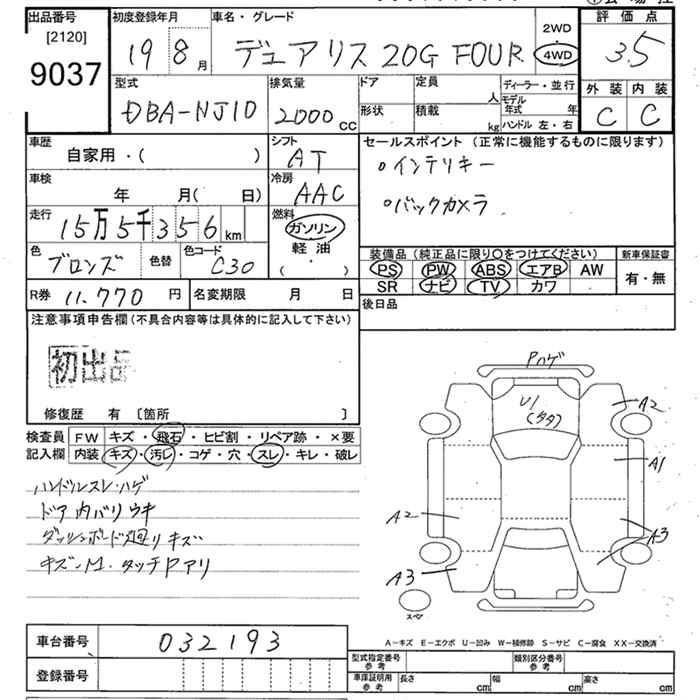 出品番号 [2120] 9037
初度登録年月 19 8月
車名・グレード デュアリス 20G FOUR
2WD 4WD
評価点 3.5
外装 内装
C C
型式 DBA-NJ10
排気量 2000 cc
ドア 形状
定員 人
積載 kg
ディーラー・並行
モデル年式 年
ハンドル 左・右
車歴 自家用・( )
シフト AT
セールスポイント (正常に機能するものに限ります)
・インテリキー
・バックカメラ
車検 年 月( 日)
冷房 AAC
走行 15万5千356 km
燃料 ガソリン
軽油・( )
色 ブロンズ
色替
色コード C30
装備品(純正品に限り○をつけてください)
新車保証書
PS PW ABS エアB AW
SR ナビ TV カワ
有・無
R券 11,770 円
名変期限 月 日
後日品
注意事項申告欄(不具合内容等は具体的に記入して下さい)
初出品
修復歴 有 [箇所 ]
検査員記入欄
FW キズ・飛石・ヒビ割・リペア跡・×要
内装 キズ・汚レ・コゲ・穴・スレ・キレ・破レ
ハンドルスレ・ハゲ
ドア内バリウキ
ダッシュボード廻りキズ
キズ・M・タッチPアリ
Pハゲ
U1
(タタ)
A2
A1
A2
A3
A3
スペア
車台番号 032193
登録番号
A-キズ E-エクボ U-凹み W-補修跡 S-サビ C-腐食 XX-交換済
型式指定番号 参考
類別区分番号 参考
車庫証明用 参考
長さ cm 幅 cm 高さ cm